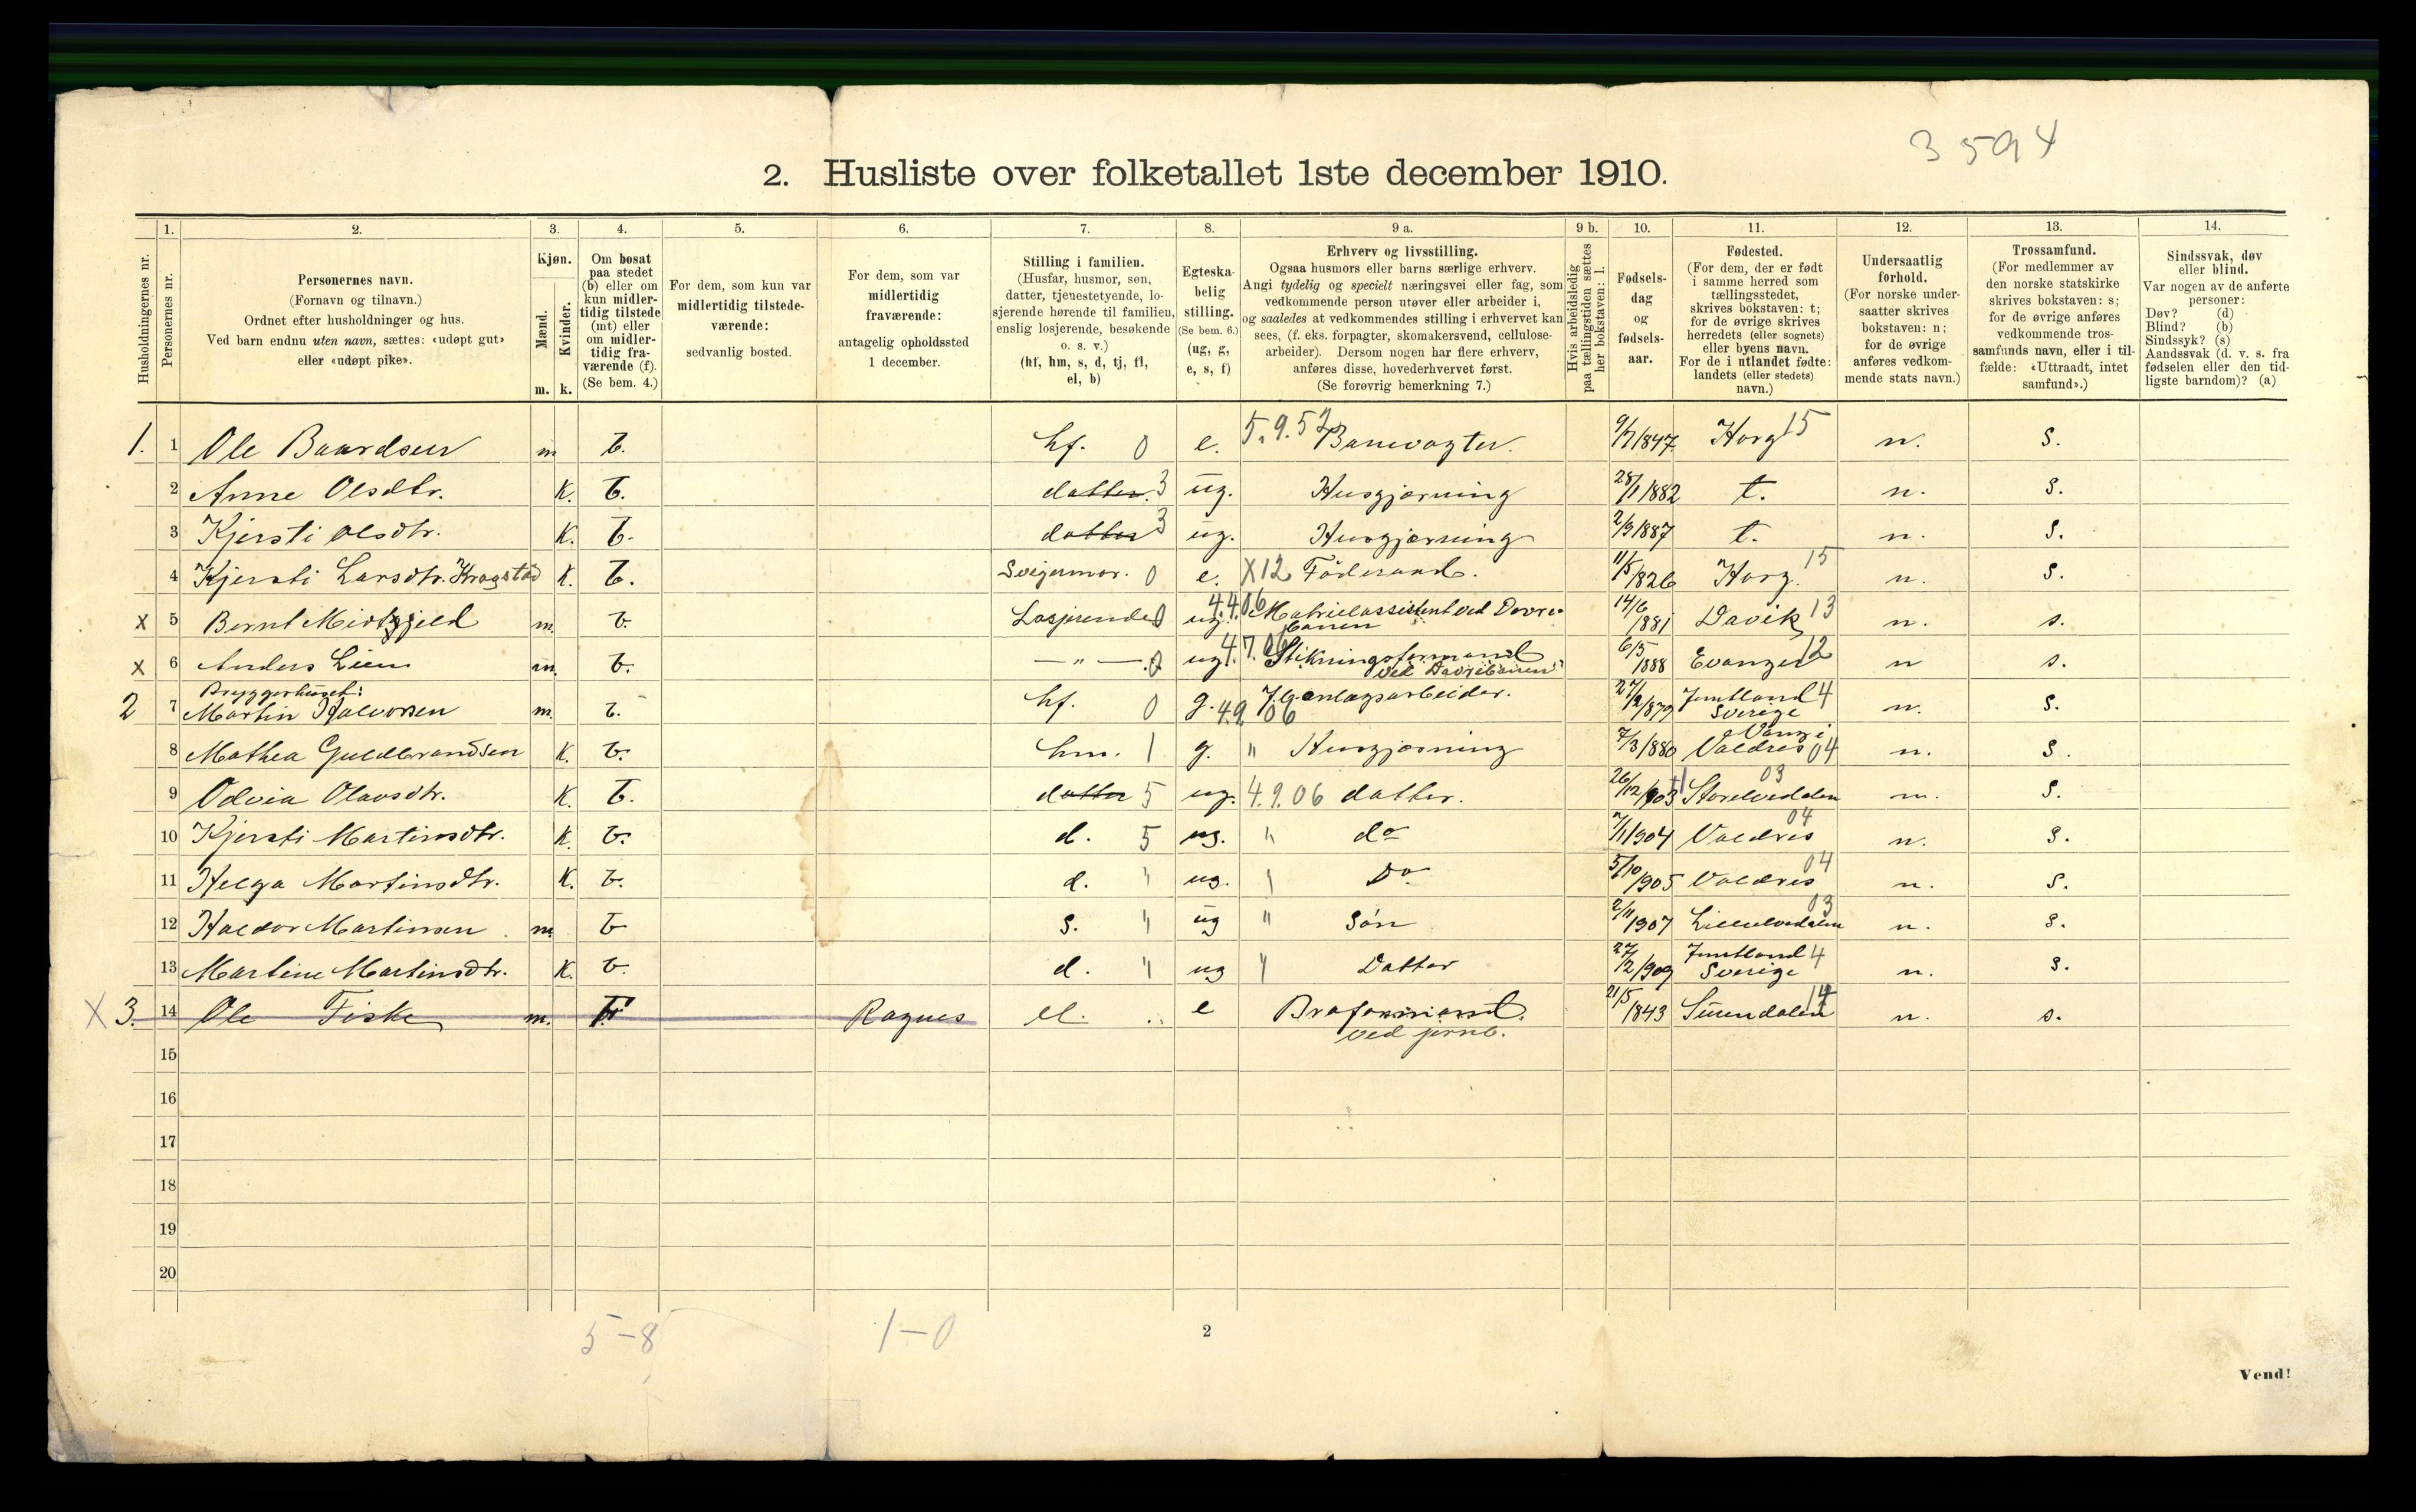 3594
2. Husliste over folketallet 1ste december 1910.
1. 2. 3. 4. 5. 6. 7. 8. 9 a. 9 b. 10. 11. 12. 13. 14.
Husholdningernes nr.
Personernes nr.
Personernes navn.
(Fornavn og tilnavn.)
Ordnet efter husholdninger og hus.
Ved barn endnu uten navn, sættes: «udøpt gut»
eller «udøpt pike».
Kjøn.
Mænd.
Kvinder.
m. k.
Om bosat
paa stedet
(b) eller om
kun midler-
tidig tilstede
(mt) eller
om midler-
tidig fra-
værende (f).
(Se bem. 4.)
For dem, som kun var
midlertidig tilstede-
værende:
sedvanlig bosted.
For dem, som var
midlertidig
fraværende:
antagelig opholdssted
1 december.
Stilling i familien.
(Husfar, husmor, søn,
datter, tjenestetyende, lo-
sjerende hørende til familien,
enslig losjerende, besøkende
o. s. v.)
(hf, hm, s, d, tj, fl,
el, b)
Egteska-
belig
stilling.
(Se bem. 6.)
(ug, g,
e, s, f)
Erhverv og livsstilling.
Ogsaa husmors eller barns særlige erhverv.
Angi tydelig og specielt næringsvei eller fag, som
vedkommende person utøver eller arbeider i,
og saaledes at vedkommendes stilling i erhvervet kan
sees, (f. eks. forpagter, skomakersvend, cellulose-
arbeider). Dersom nogen har flere erhverv,
anføres disse, hovederhvervet først.
(Se forøvrig bemerkning 7.)
Hvis arbeidsledig
paa tællingstiden sættes
her bokstaven: l.
Fødsels-
dag
og
fødsels-
aar.
Fødested.
(For dem, der er født
i samme herred som
tællingsstedet,
skrives bokstaven: t;
for de øvrige skrives
herredets (eller sognets)
eller byens navn.
For de i utlandet fødte:
landets (eller stedets)
navn.)
Undersaatlig
forhold.
(For norske under-
saatter skrives
bokstaven: n;
for de øvrige
anføres vedkom-
mende stats navn.)
Trossamfund.
(For medlemmer av
den norske statskirke
skrives bokstaven: s;
for de øvrige anføres
vedkommende tros-
samfunds navn, eller i til-
fælde: «Uttraadt, intet
samfund».)
Sindssvak, døv
eller blind.
Var nogen av de anførte
personer:
Døv? (d)
Blind? (b)
Sindssyk? (s)
Aandssvak (d. v. s. fra
fødselen eller den tid-
ligste barndom)? (a)
1. 1 Ole Baardsen m b. hf. 0 e. 5.9.52 Banevogter. 9/7 1847 Horg 15 n. s.
2 Anne Olsdtr. K. b. datter. 3 ug. Husgjærning 28/1 1882 t. n. s.
3 Kjersti Olsdtr. K. b. datter 3 ug. Husgjærning 2/9 1887 t. n. s.
4 Kjersti Larsdtr. Krogstad K. b. Svigermor. 0 e. X12 Føderaad. 11/5 1826 Horg. 15 n. s.
x 5 Bernt m. b. Losjerende 0 ug. 4.4.06 Matrielassistent ved Dovre-
banen 14/6 1881 Davik 13 n. s.
x 6 Anders Lien m. b. — " — 0 ug. 4.7.06 Stikningsformand
ved Dovrebanen 6/5 1888 Evanger 12 n s.
Bryggerhuset:
2 7 Martin Halvorsen m. b. hf. 0 g. 4.9.06 J.b.anlægsarbeider. 27/2 1879 Jemtland 4
Sverige n. s.
8 Mathea Guldbrandsen K. b. hm. 1 g. " Husgjærning 7/3 1880 Vang i
Valdres 04 n. s.
9 Odvia Olavsdtr. K. b. datter 5 ug. 4.9.06 datter. 26/12 1903 Storelvedalen 03 n. s.
10 Kjersti Martinsdtr. K. b. d. 5 ug. " do 7/1 1904 Valdres 04 n. s.
11 Helga Martinsdtr. K. b. d. " ug. " Do 5/10 1905 Valdres 04 n. s.
12 Haldor Martinsen m. b s. " ug " Søn 2/11 1907 Lilleelvedalen 03 n. s.
13 Martine Martinsdtr. K. b. d. " ug " Datter 27/2 1909 Jemtland 4
Sverige n. s.
X 3. 14 Ole Fiske m. F Rognes el. e Broformand.
ved jernb. 21/5 1843 Surendalen n. s.
15
16
17
18
19
20
5-8 1-0
2
Vend!